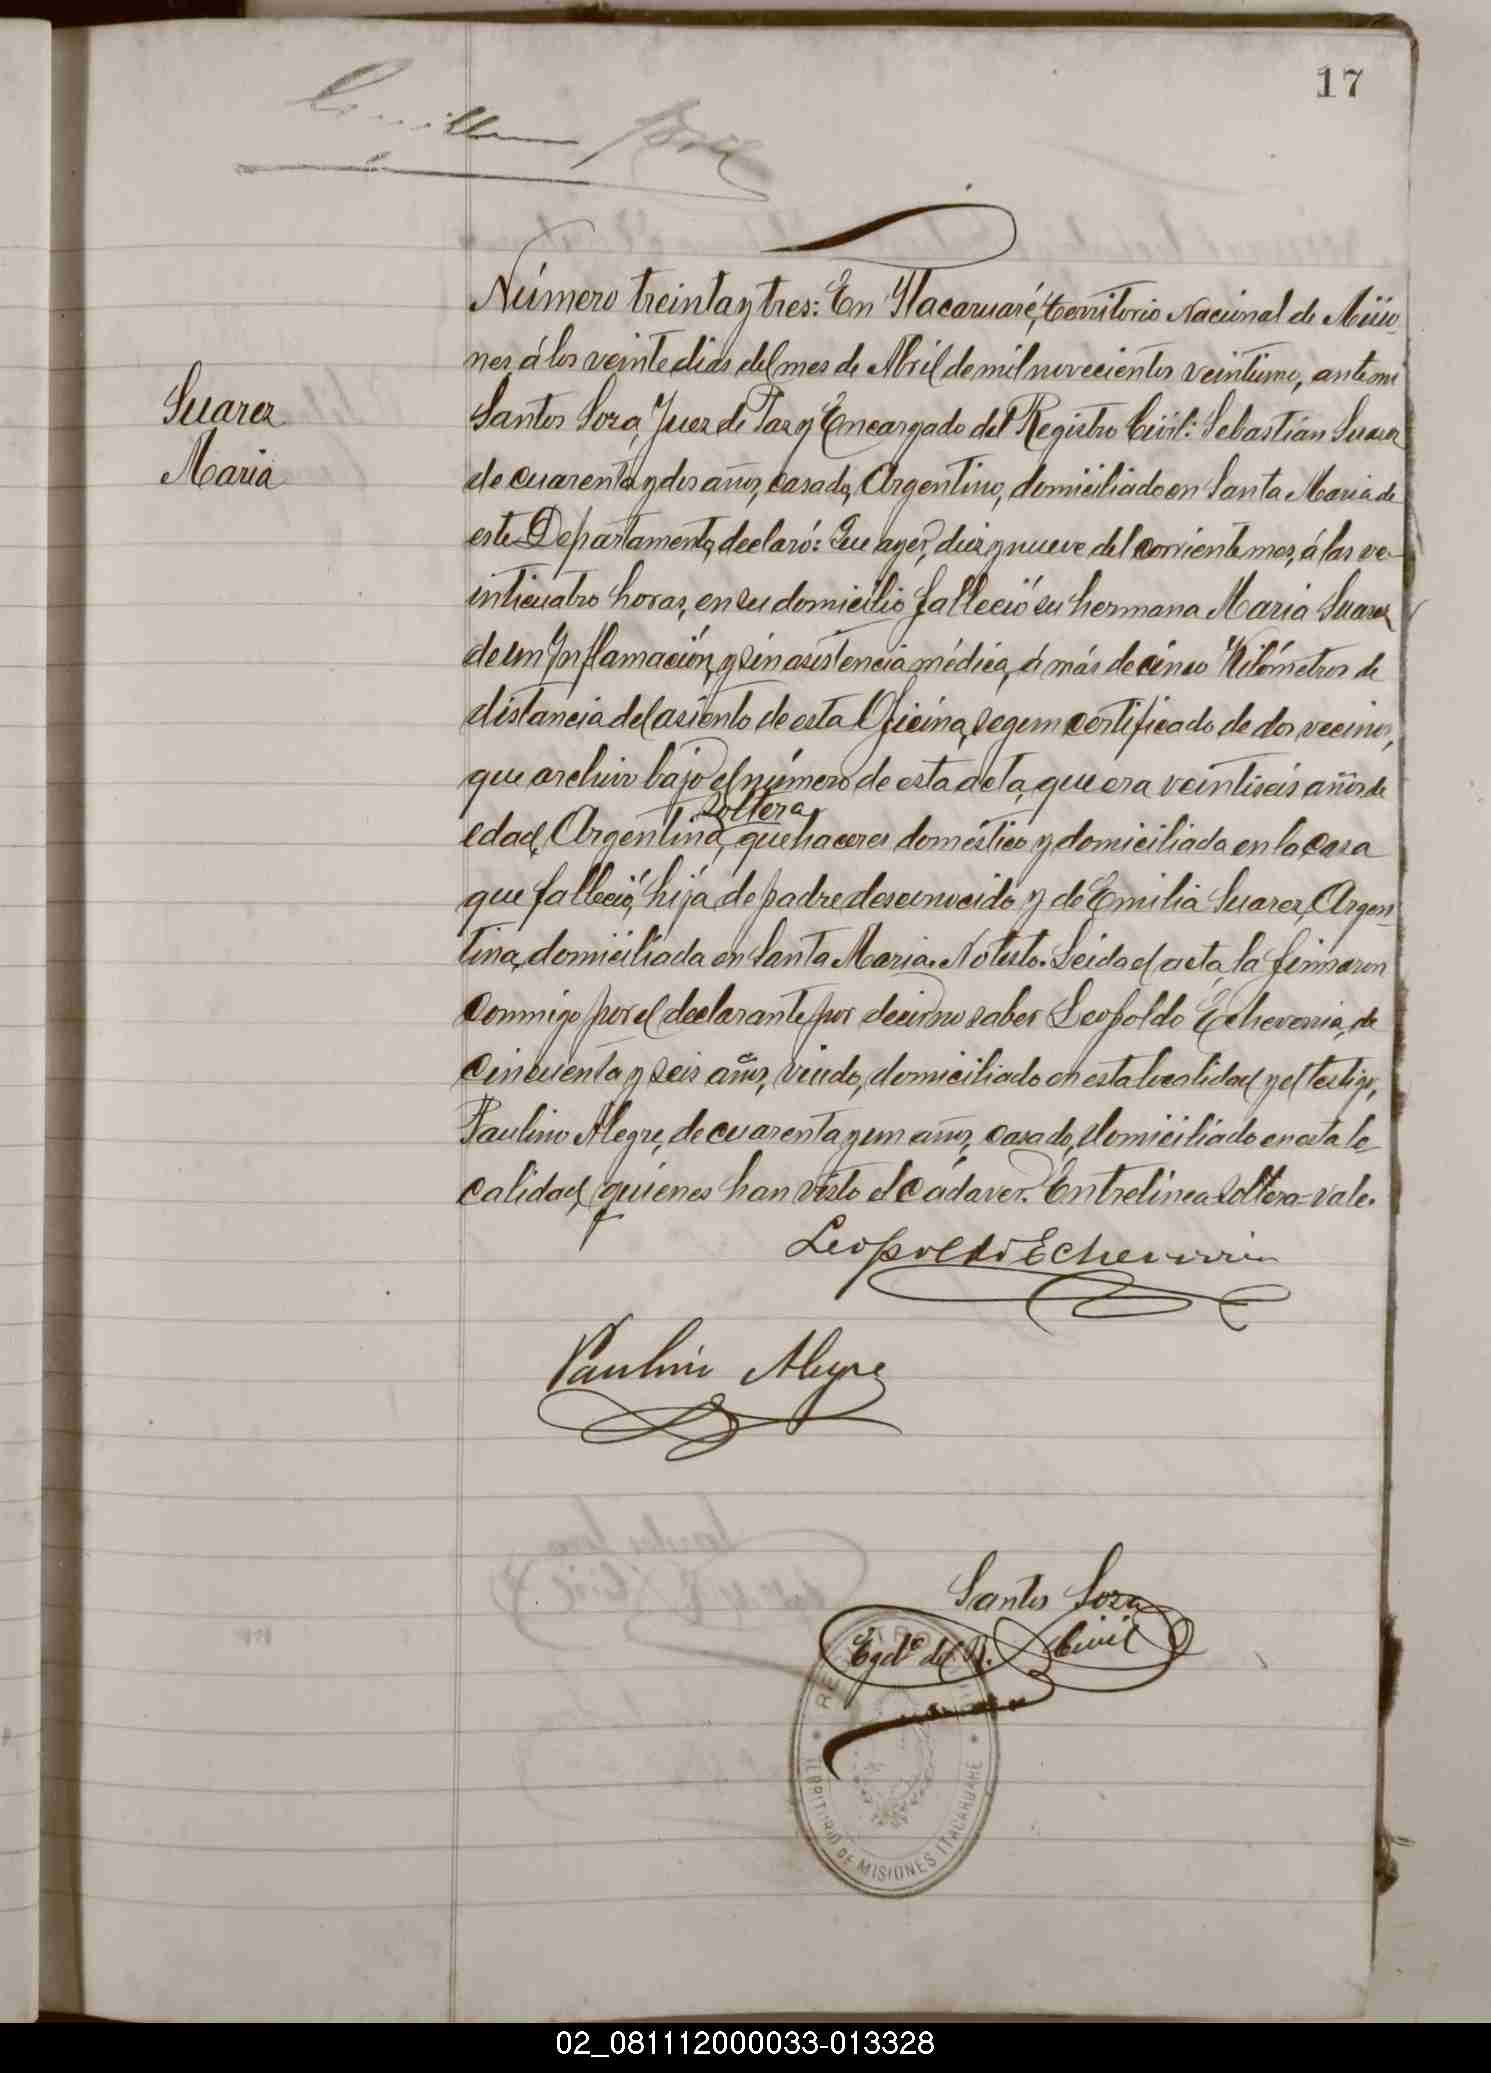 17
Suarez
Maria
Número treinta y tres: En Ytacaruaré, territorio Nacional de Misio-
nes á los veinte dias del mes de Abril de mil novecientos veintiuno, ante mi
Santos Soza, Juez de Paz y Encargado del Registro Civil: Sebastián Suarez
de cuarenta y dos años, casado, Argentino, domiciliado en Santa Maria de
este Departamento, declaró: Que ayer, diez y nueve del corriente mes, á las ve-
inticuatro horas, en su domicilio falleció su hermana Maria Suarez
de un Inflamación, y sin asistencia médica, á más de cinco Kilómetros de
distancia del asiento de esta Oficina, segun certificado de dos vecinos,
que archivo bajo el número de esta acta, que era veintiseis años de
soltera
edad, Argentina, quehaceres domestico y domiciliada en la casa
que falleció, hija de padre desconocido y de Emilia Suarez, Argen-
tina, domiciliada en Santa Maria. No testo. Leida el acta, la firmaron
conmigo por el declarante por decir no saber Leopoldo Echeverria, de
cincuenta y seis años, viudo, domiciliado en esta localidad y el testigo,
Paulino Alegre, de cuarenta y un años, casado, domiciliado en esta lo-
calidad, quienes han visto el cádaver. Entrelinea soltera=vale.
Leopoldo Echeverria
Paulino Alegre
Santos Soza
Egdo del R. Civil
REGISTRO CIVIL
TERRITORIO DE MISIONES ITACARUARE
02_081112000033-013328